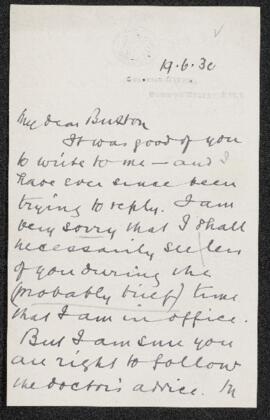 19.6.30
My dear Buxton
It was good of you
to write to me — and I
have ever since been
trying to reply. I am
very sorry that I shall
necessarily see less
of you during the
(probably brief) time
that I am in office.
But I am sure you
are right to follow
the doctor's advice.